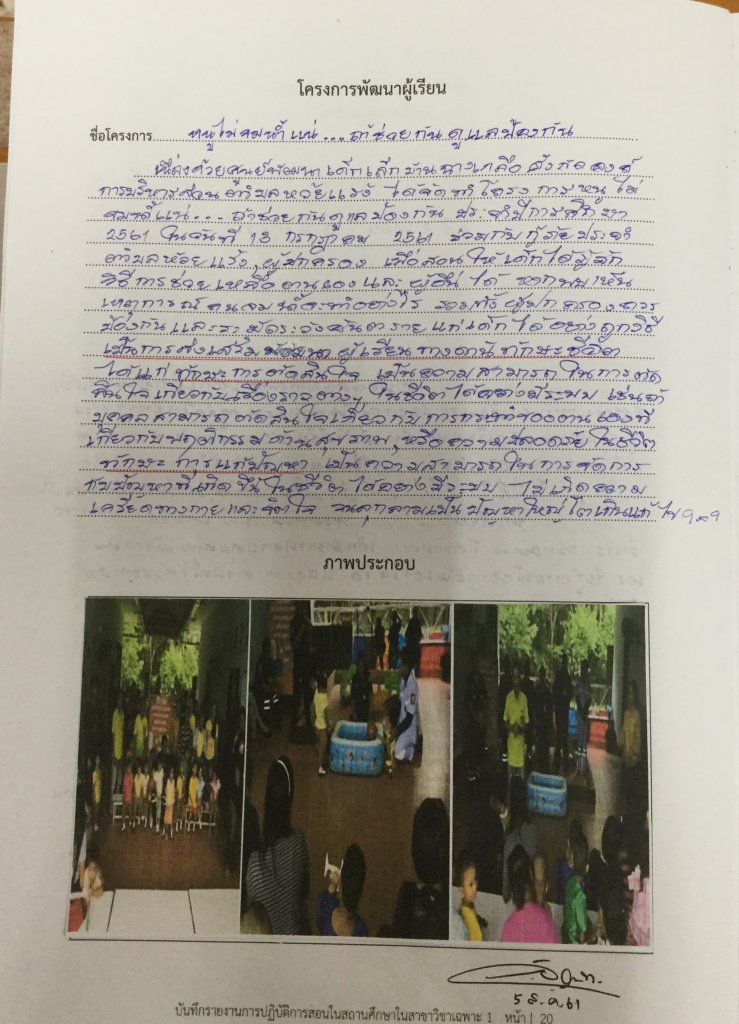 โครงการพัฒนาผู้เรียน
ชื่อโครงการ หนูไม่จมน้ำแน่...ถ้าช่วยกันดูแลป้องกัน
เนื่องด้วยศูนย์พัฒนาเด็กเล็กบ้านฉางเกลือ สังกัดองค์
การบริหารส่วนตำบลห้วยแร้ง ได้จัดทำโครงการหนูไม่
จมน้ำแน่... ถ้าช่วยกันดูแลป้องกัน ประจำปีการศึกษา
2561 ในวันที่ 13 กรกฎาคม 2561 ร่วมกับกู้ภัยประจำ
ตำบลห้วยแร้ง, ผู้ปกครอง เพื่อสอนให้เด็กได้รู้จัก
วิธีการช่วยเหลือตนเองและผู้อื่นได้ หากพบเห็น
เหตุการณ์คนจมน้ำจะทำอย่างไร รวมทั้งผู้ปกครองควร
ป้องกันและระมัดระวังอันตรายแก่เด็กได้อย่างถูกวิธี
เป็นการส่งเสริมพัฒนาผู้เรียนทางด้านทักษะชีวิต
ได้แก่ ทักษะการตัดสินใจ เป็นความสามารถในการตัด
สินใจเกี่ยวกับเรื่องราวต่างๆ ในชีวิตได้อย่างมีระบบ เช่น ถ้า
บุคคลสามารถตัดสินใจเกี่ยวกับการกระทำของตนเองที่
เกี่ยวกับพฤติกรรมด้านสุขภาพ, หรือความปลอดภัยในชีวิต
ทักษะการแก้ปัญหา เป็นความสามารถในการจัดการ
กับปัญหาที่เกิดขึ้นในชีวิตได้อย่างมีระบบ ไม่เกิดความ
เครียดทางกายและจิตใจ จนลุกลามเป็นปัญหาใหญ่โตเกินแก้ไข
ภาพประกอบ
61
บันทึกรายงานการปฏิบัติการสอนในสถานศึกษาในสาขาวิชาเฉพาะ 1 หน้า | 20